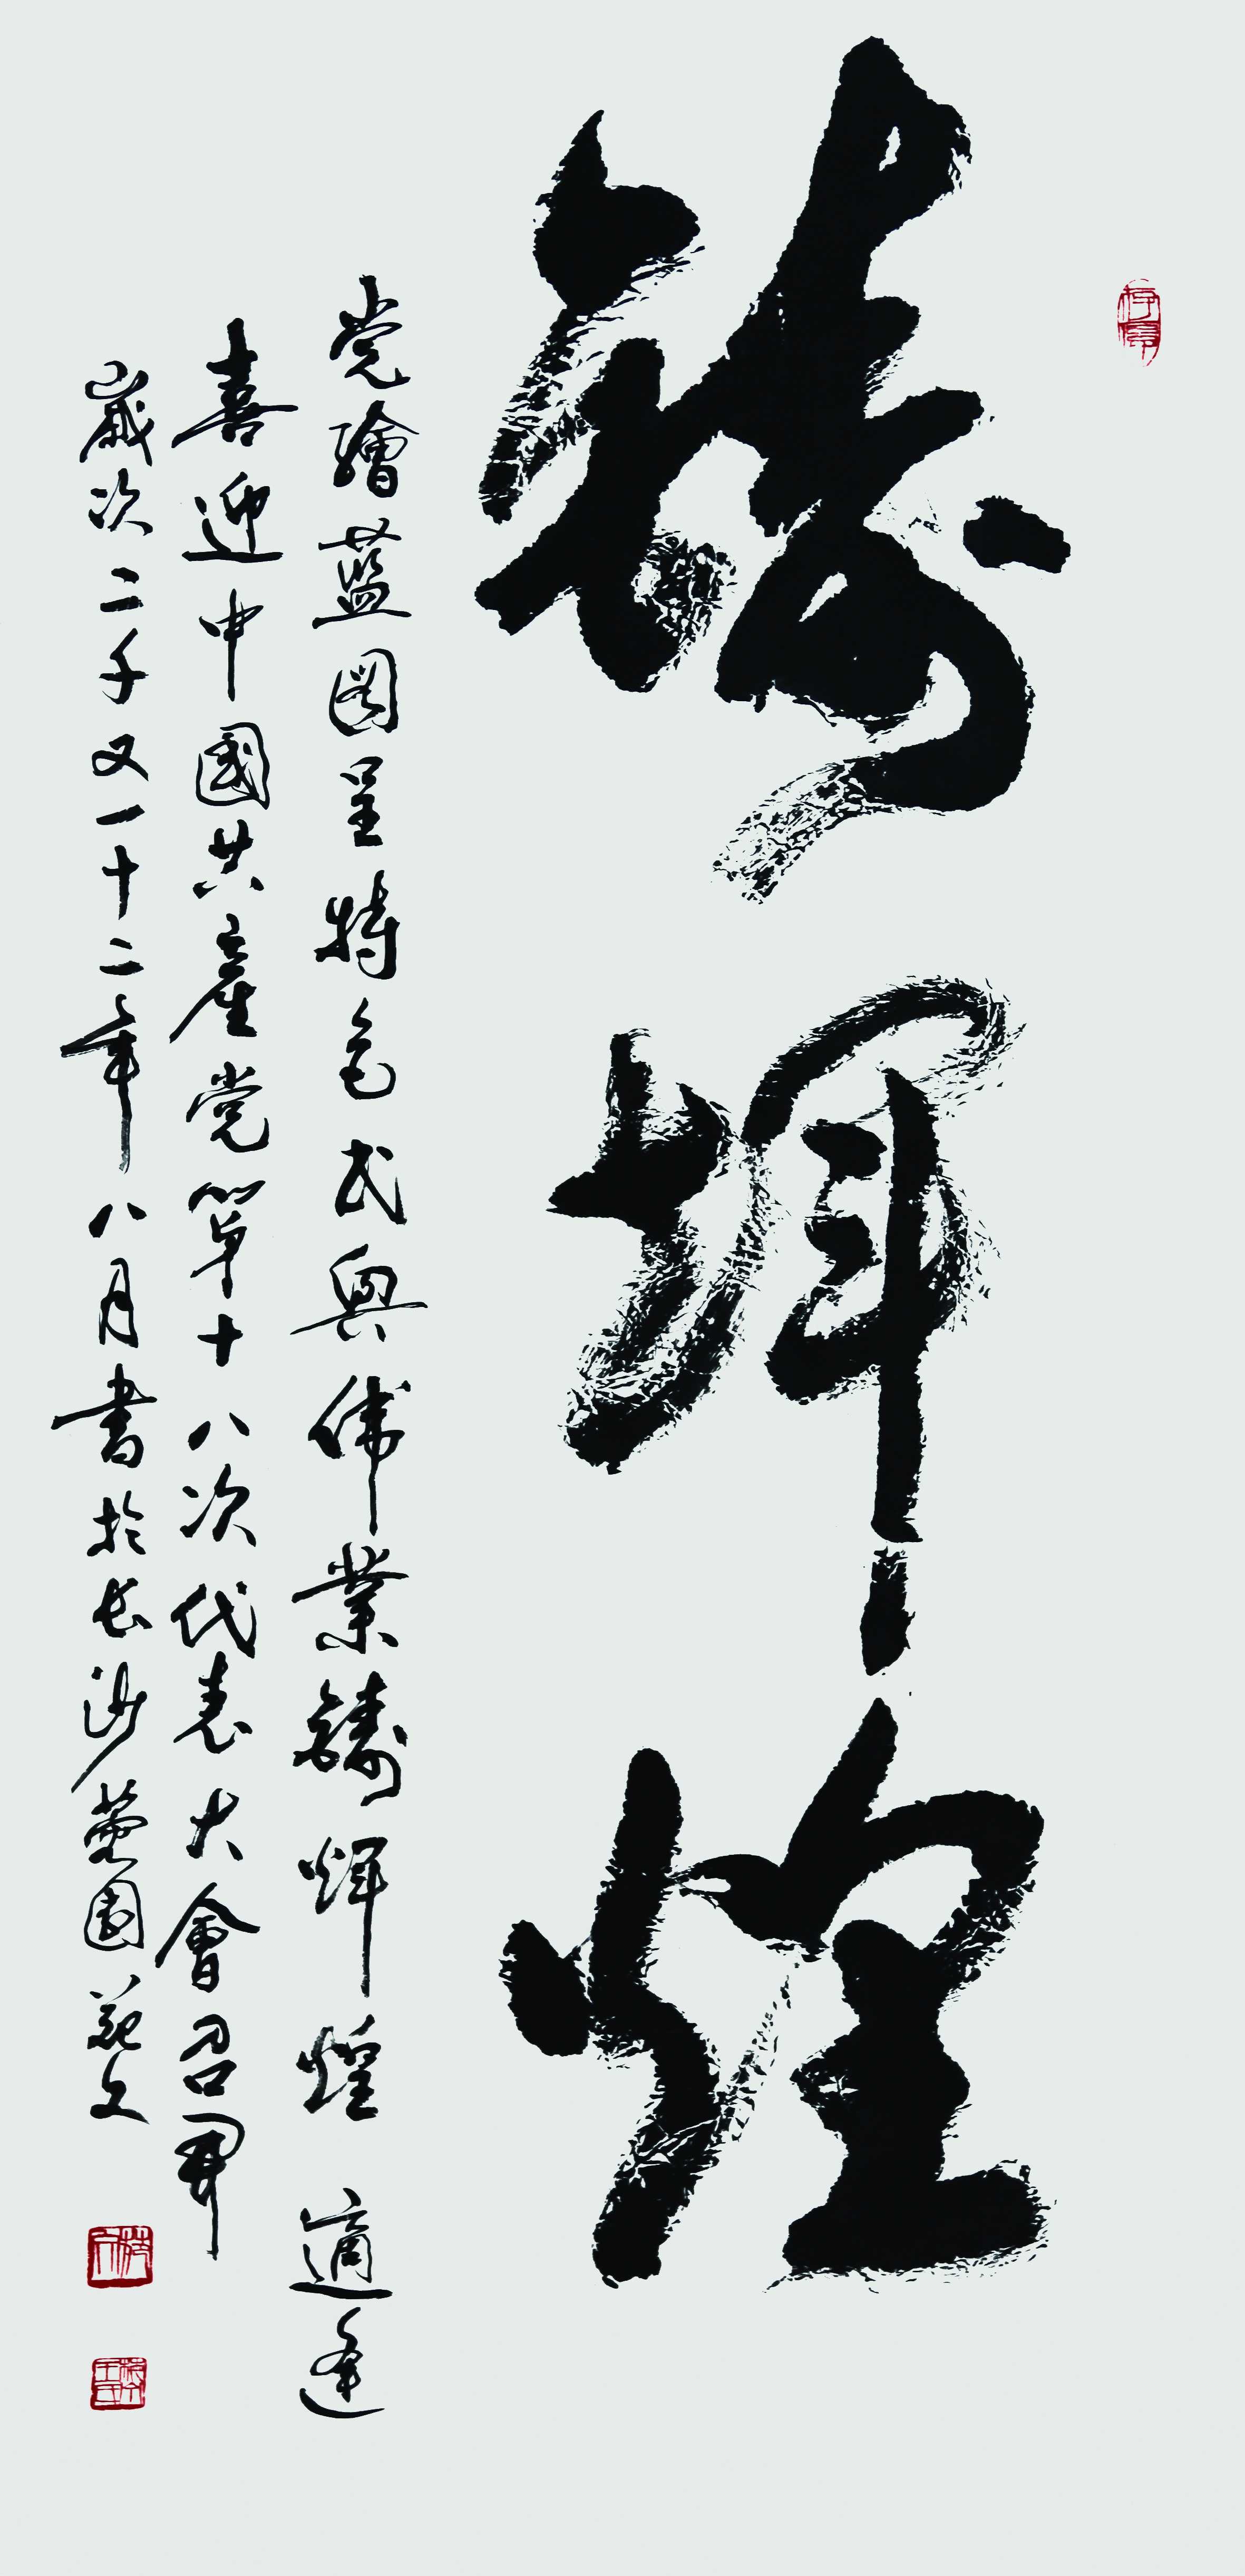 鑄輝煌
党繪藍圖呈特色民興偉業鑄輝煌 適逢
喜迎中國共產党第十八次代表大會召開
歲次二千又一十二年八月書於長沙 園 文